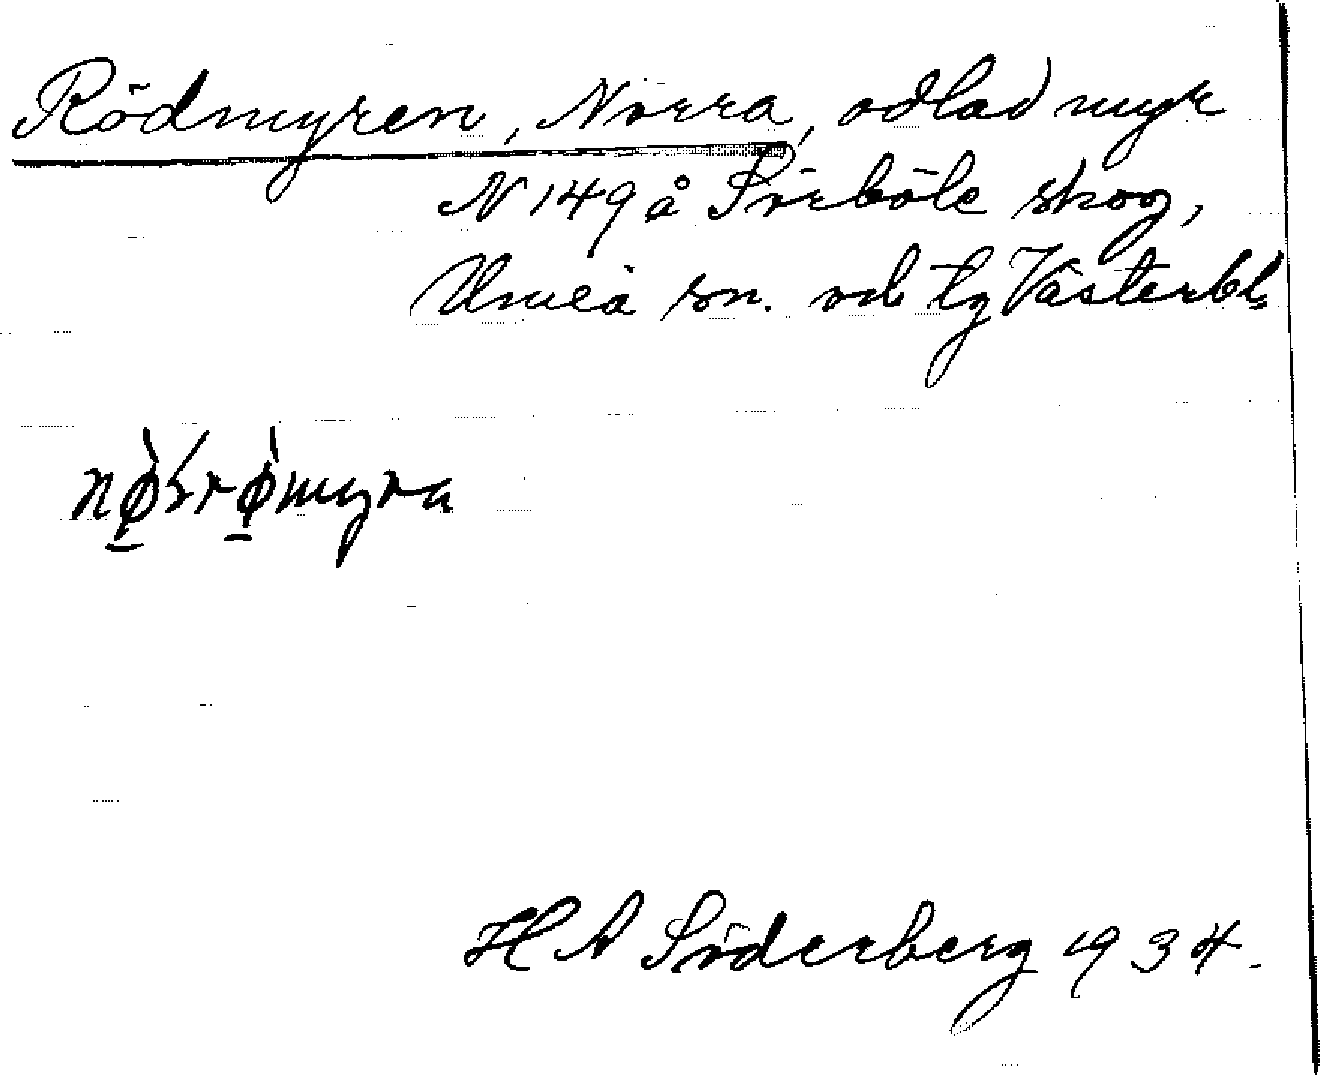 Rödmyren, Norra, odlad myr
N 149 å Sörböle skog,
Umeå sn. och tg Västerbl,
myra
H A Söderberg 1934.